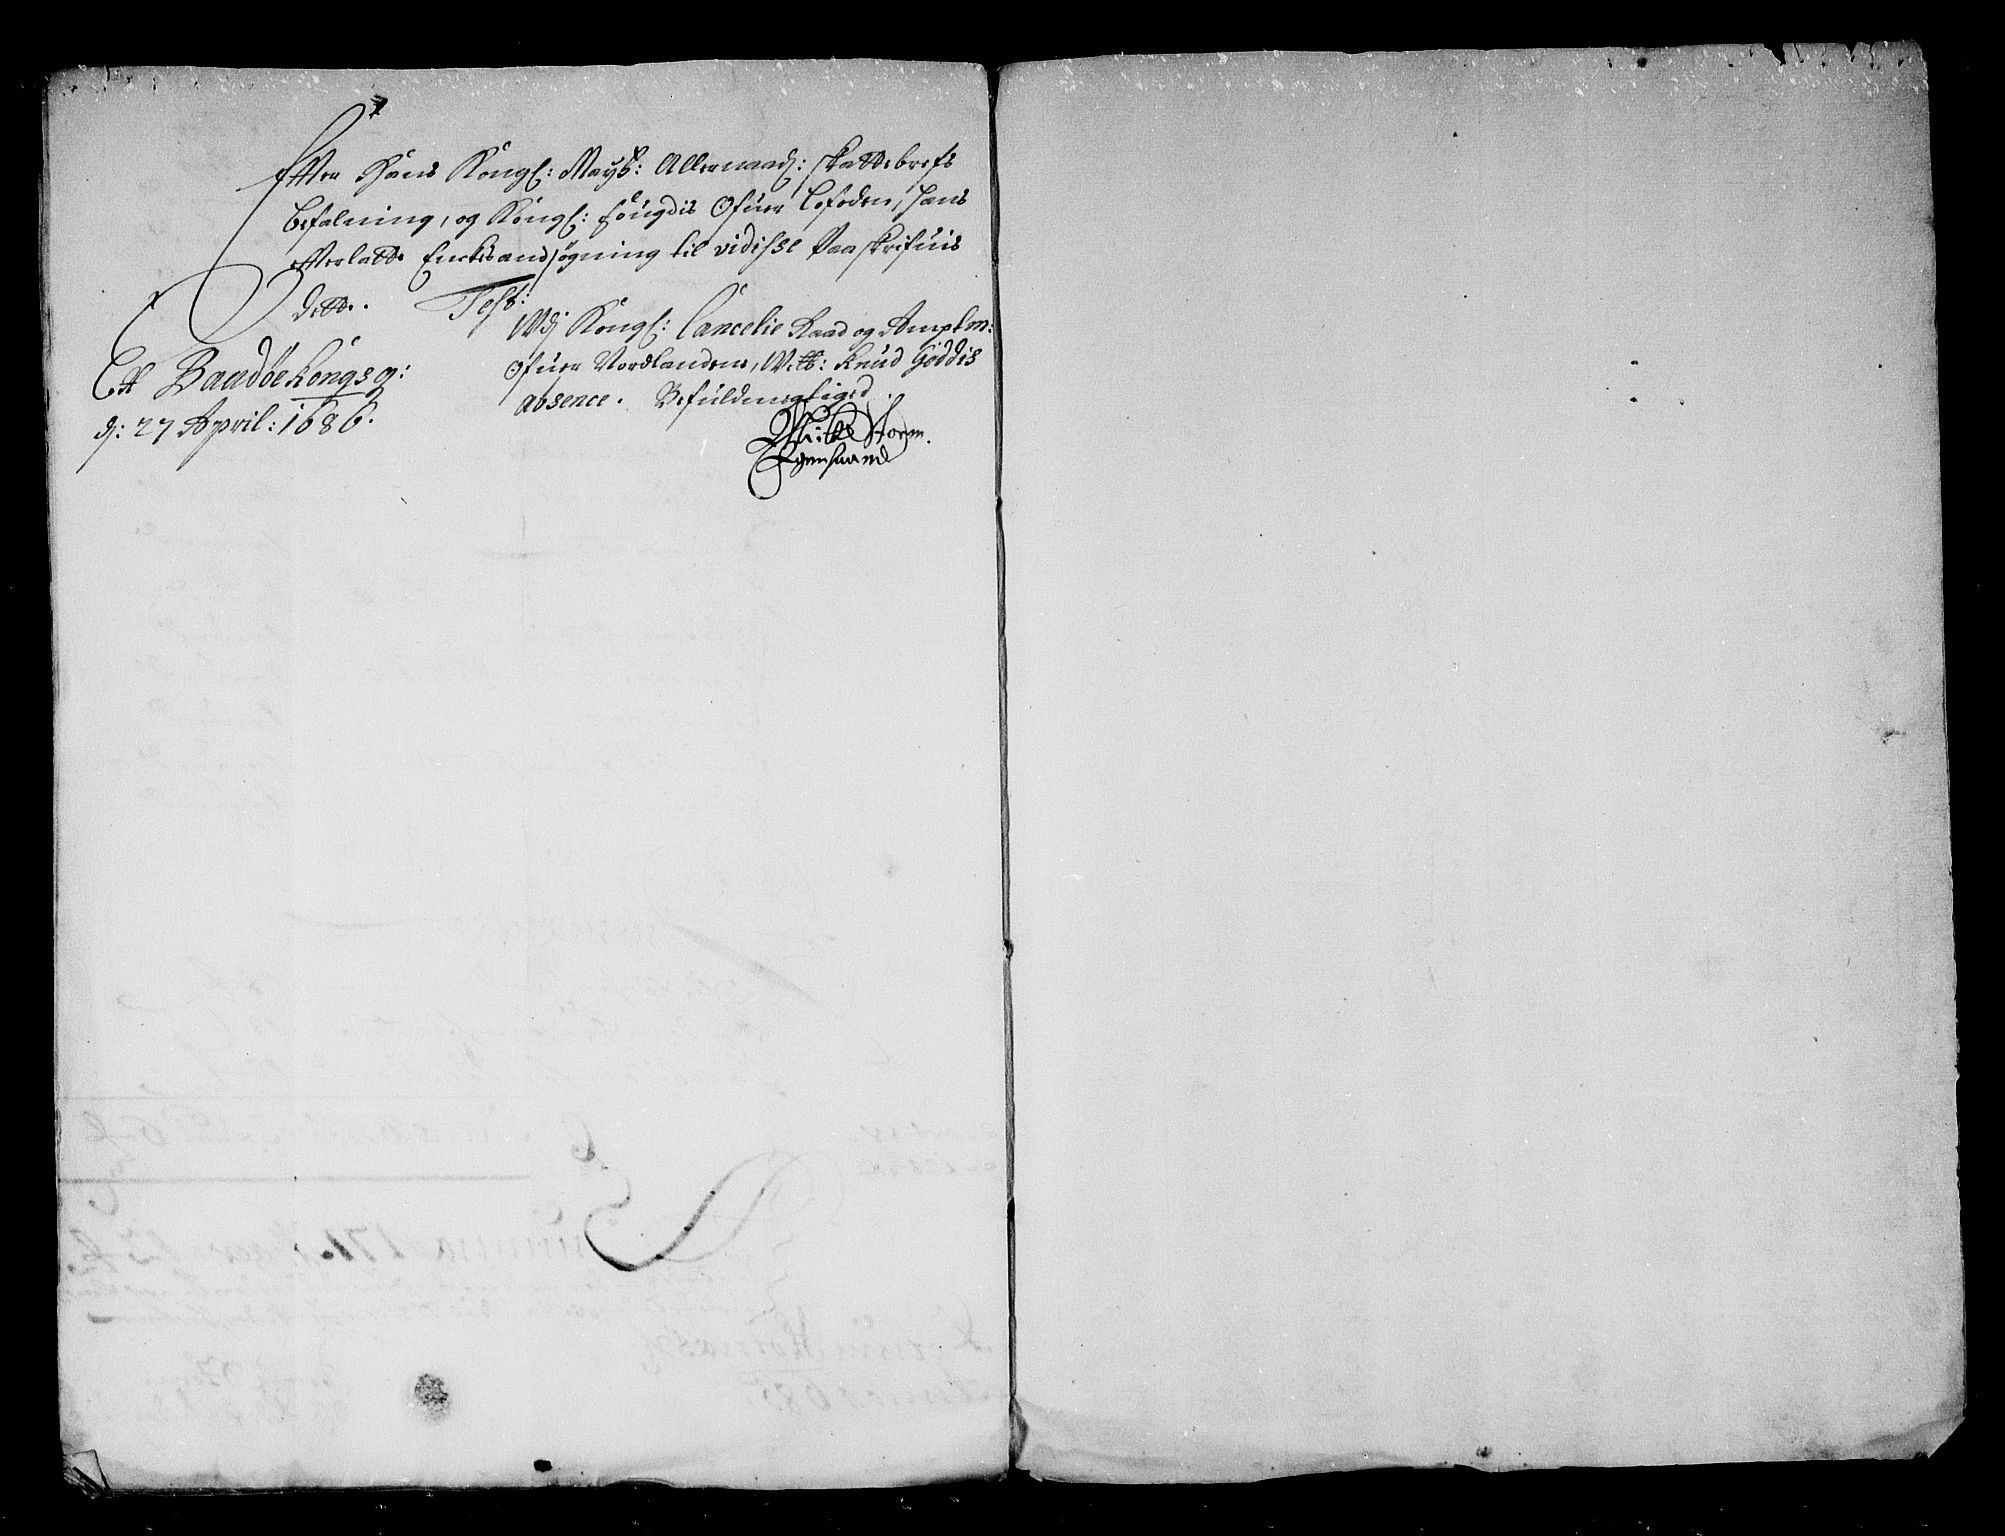 Efter Hans Kongl: Mayts: Allernaad: skattebrefs
befalning, og Kongl: fougdis Ofuer Lofoden, hans
efterlatte Enckis ansøgning til vidisse Paaskrifuis
dette. Test:
Wdj Kongl: Cancelie Raad og Amptm:
Ofuer Nordlandene, W: Hr: Knud Geddis
absence. Befuldmegtiged
Storm.
Egenhaand
Baadøe Kongsg:
d: 27 April: 1686.